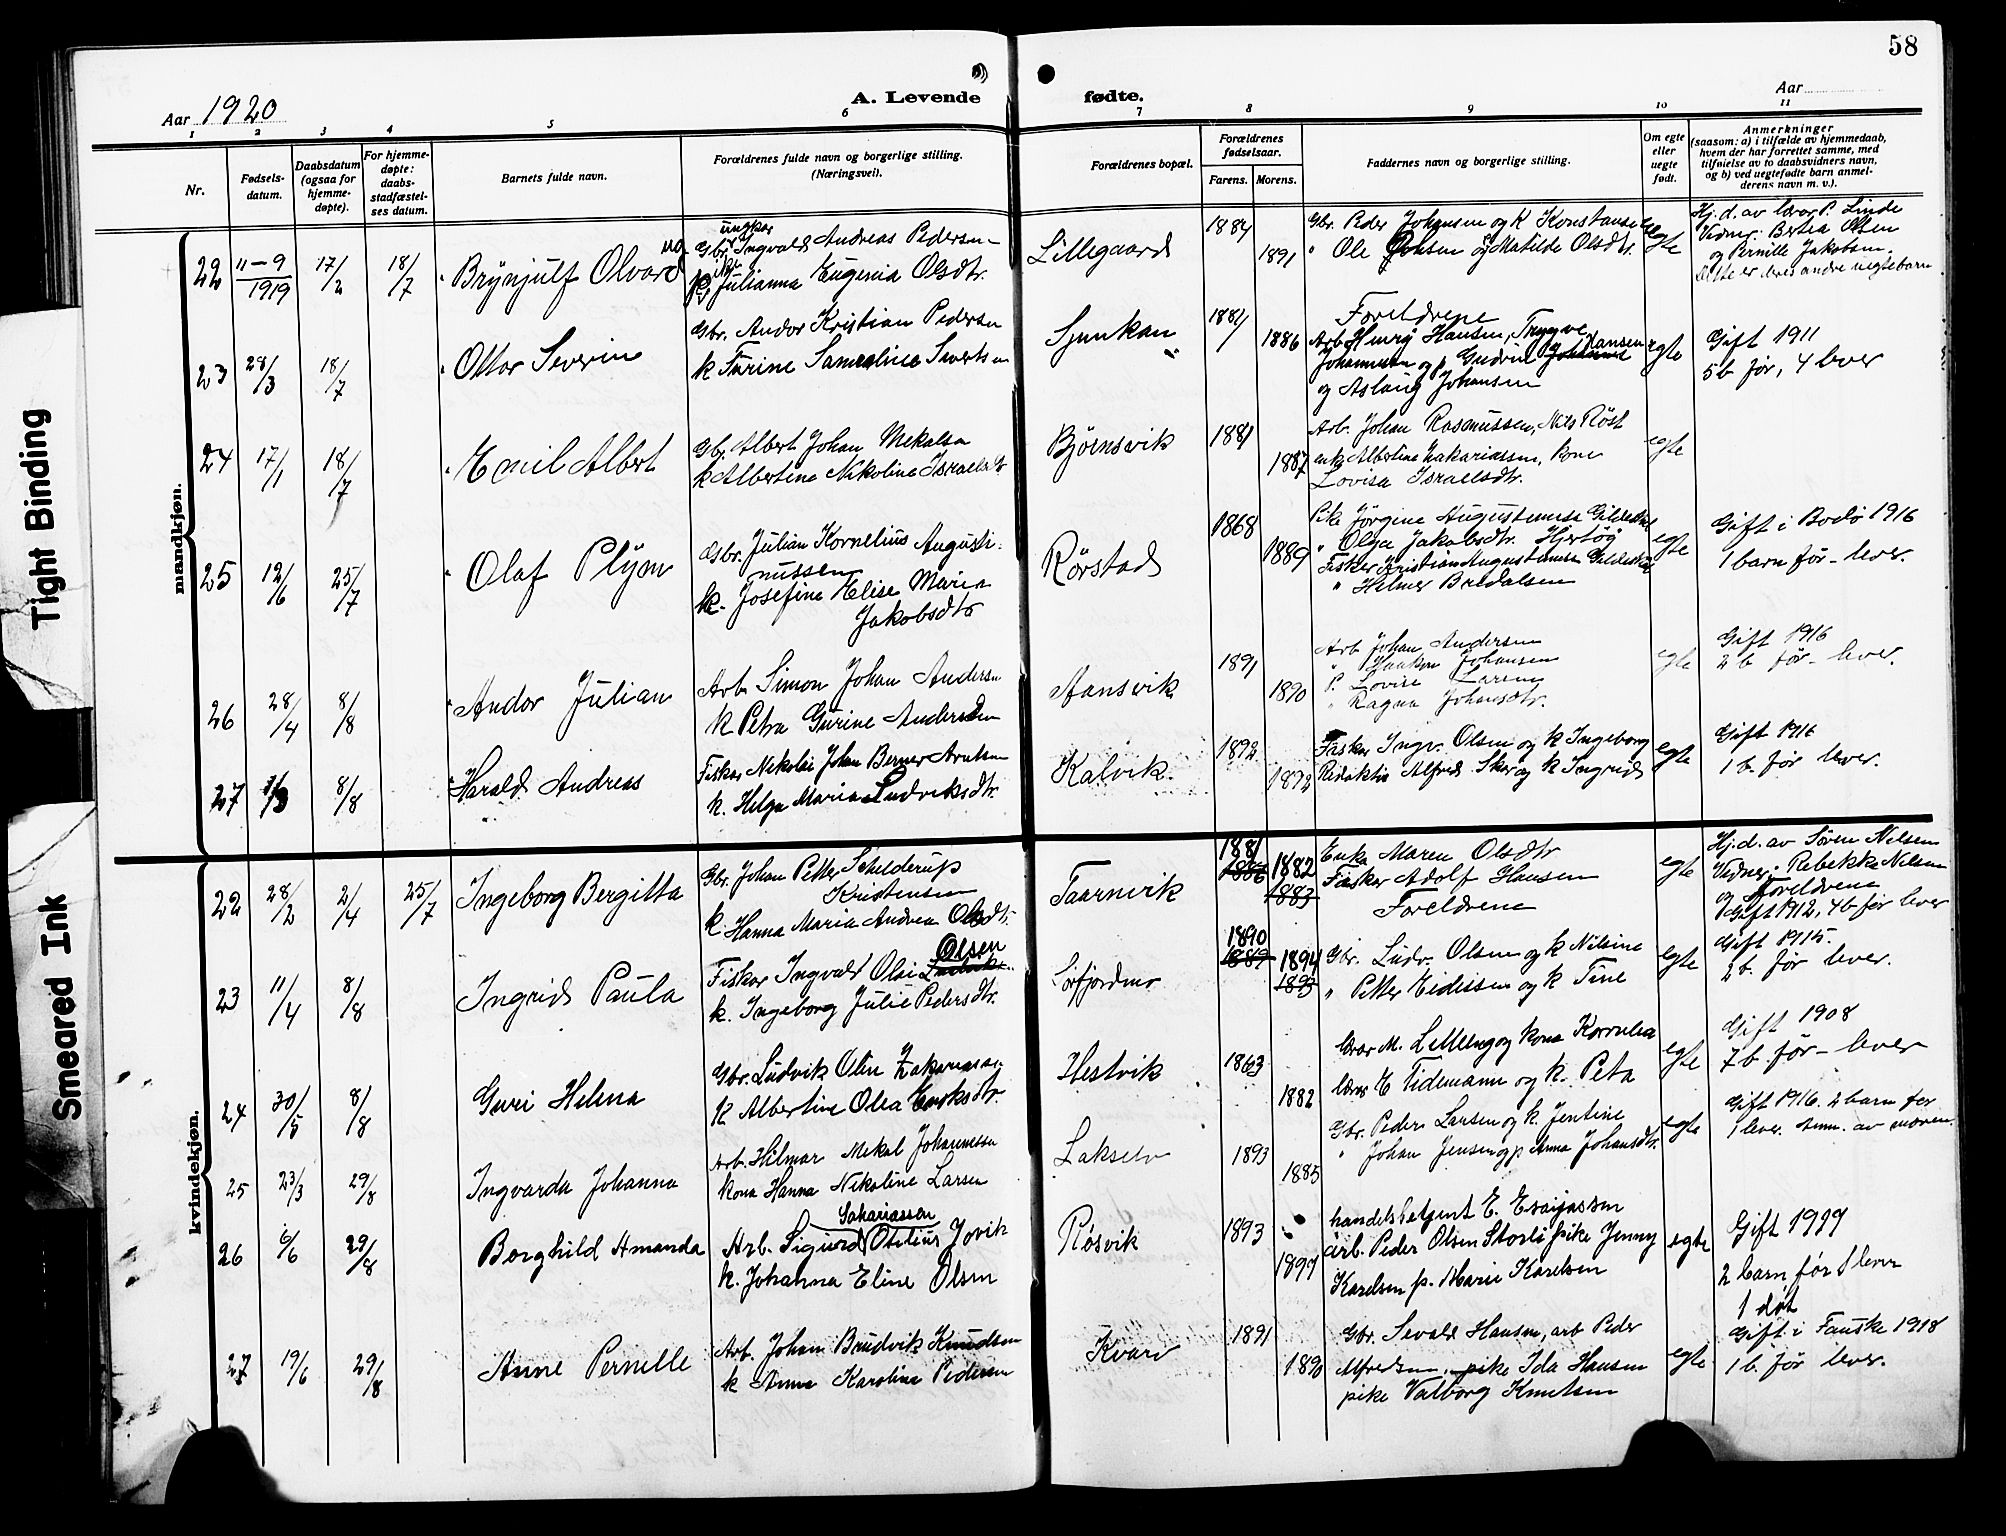 58
Aar 1920
A. Levende fødte.
Aar
1 2 3 4 5 6 7 8 9 10 11
Nr.
Fødsels-
datum.
Daabsdatum
(ogsaa for
hjemme-
døpte).
For hjemme-
døpte:
daabs-
stadfæstel-
ses datum.
Barnets fulde navn.
Forældrenes fulde navn og borgerlige stilling.
(Næringsvei).
Forældrenes bopæl.
Forældrenes
fødselsaar.
Farens. Morens.
Faddernes navn og borgerlige stilling.
Om egte
eller
uegte
født.
Anmerkninger
(saasom: a) i tilfælde av hjemmedaab,
hvem der har forrettet samme, med
tilføielse av to daabsvidners navn,
og b) ved uegtefødte barn anmel-
derens navn m. v.).
mandkjøn.
22 11-9 1919 17/2 18/7 Brynjulf Olvard
ungkar
Gbr. Ingvald Andreas Pedersen
pike Julianna Eugenia Olsdtr.
Lillegaard
1884
1891
Gbr. Peder Johansen og k Konstanse
" Ole Johsen og Matilde Olsdtr.
uegte
Hj. d. av lærer P. Linde
Vidner: Berta Olsen
og Pernille Jakobsen.
Dette er deres andre uegte barn
23 28/3 18/7 Ottar Severin
Gbr. Andor Kristian Pedersen
k Turine Samueline Sivertsen
Sjunkan
1881
1886
Foreldrene
Arb. Henrig Hansen, Trygve
Johannesen og p Gudrun Hansen
og Aslaug Johansen
egte
Gift 1911
5 b før, 4 lever
24 17/1 18/7 Emil Albert
Gbr. Albert Johan Mekalsen
k Albertine Nikoline Israelsdtr
Bjørnsvik
1881
1887
Arb. Johan Rasmussen, Nils Røst
enke Albertine Zakariassen, kone
Lovisa Israelsdtr.
egte
25 12/6 25/7 Olaf Plyon
Gbr. Julian Kornelius Augusti-
nussen
k. Josefine Elise Maria
Jakobsdtr
Rørstad
1868
1889
Pike Jørgine Augustinussen Gildeskaal
" Olga Jakobsdtr. Hjertøy
Fisker Kristian Augustinussen Gildeskaal
" Helmer Bredalsen
egte
Gift i Bodø 1916
1 barn før - lever.
26 28/4 8/8 Andor Julian
Arb Simon Johan Andersen
k Petra Gurine Andersen
Aansvik
1891
1890
Arb Johan Andersen
" Haakon Johansen
P. Lovise Larsen
" Ragna Johansdtr.
egte
Gift 1916
2 b. før - lever.
27 8/8 Harald Andreas
Fisker Nikolai Johan Berner Arntsen
k. Helga Maria Ludviksdtr.
Kalvik.
1892
1892
Fisker Ingv. Olsen og k Ingeborg
Redaktør Alfred Skar og k Ingrid
egte
Gift 1916
1 b. før lever.
kvindekjøn.
22 28/2 2/4 25/7 Ingeborg Bergitta
Gbr. Johan Petter Schelderup
Kristensen
k. Hanna Maria Andrea Olsdtr.
Taarnvik
1881
1886
1882
1883
Enke Maren Olsdtr
Fisker Adolf Hansen
Foreldrene
egte
Hj. d. av Søren Nilsen
Vidner: Rebekka Nilsen
og Foreldrene
Gift 1912, 4 b før lever
23 11/4 8/8 Ingrid Paula
Olsen
Fisker Ingvald Olsi
k. Ingeborg Julie Pedersdtr.
Sørfjorden
1890
1889
1894
1893
Gbr. Ludv. Olsen og k Nilsine
" Petter Eidissen og k Tine
egte
Gift 1915.
2 b. før lever.
24 30/5 8/8 Guri Helena
Gbr. Ludvik Olin Zakariassen
k Albertine Olea Eriksdtr.
Hestvik
1863
1882
lærer M. Lilleeng og kona Kornelia
lærer E Tidemann og k. Peta
egte
Gift 1908
7 b. før - lever
25 23/3 29/8 Ingvarda Johanna
Arb. Hilmar Mekal Johannessen
kona Hanna Nikoline Larsen
Lakselv
1893
1885
Gbr. Peder Larsen og k. Jentine
" Johan Jensen og p Anna Johansdtr.
egte
Gift 1916. 2 barn før
1 lever. Anm. av moren.
26 6/6 29/8 Borghild Amanda
Sakariassen
Arb. Sigurd Otelius Jovik
k. Johanna Eline Olsen
Røsvik
1893
1897
handelsbetjent E. Esaijassen
arb. Peder Olsen Storli pike Jenny
Karelsen p. Marie Karelsen
egte
Gift 1919
2 barn før 1 lever
1 død
27 19/6 29/8 Anne Pernelle
Arb. Johan Brudvik Knudsen
k Anna Karoline Pedersen
Kvarv
1891
1890
Gbr. Sevald Hansen, arb Peder
Alfredsen, pike Ida Hansen
pike Valborg Knutsen
egte
Gift i Fauske 1918
1 b. før lever.
Tight Binding
Smeared Ink